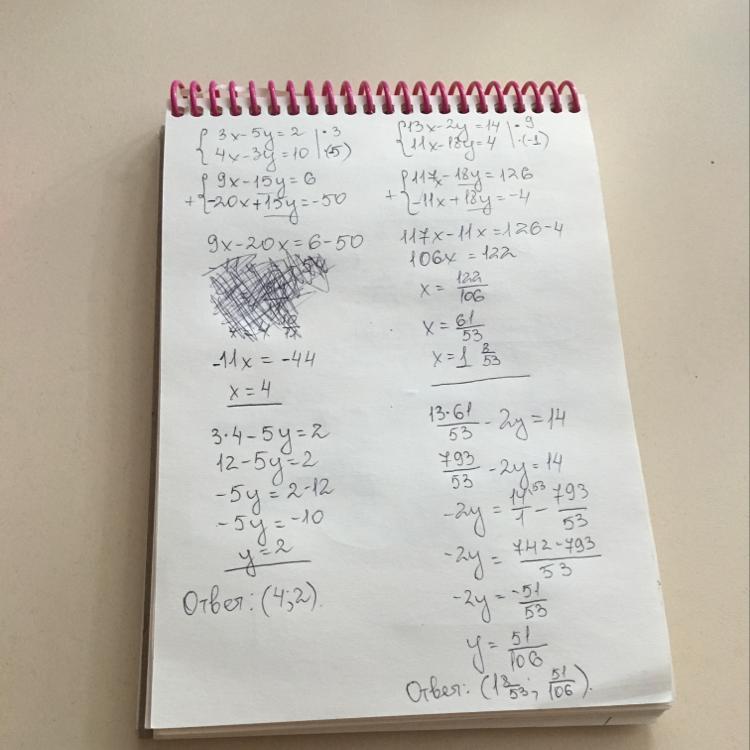 {3x-5y=2 |·3
{4x-3y=10 |·(-5)
{9x-15y=6
+{-20x+15y=-50
9x-20x=6-50
-11x = -44
x=4
3·4-5y=2
12-5y=2
-5y=2-12
-5y=-10
y=2
Ответ: (4;2).
{13x-2y=14 |·9
{11x-18y=4 |·(-1)
{117x-18y=126
+{-11x+18y=-4
117x-11x=126-4
106x=122
x=122/106
x=61/53
x=1 8/53
13·61/53 - 2y=14
793/53 - 2y=14
-2y = 14/1 ·53 - 793/53
-2y = 742-793/53
-2y = -51/53
y = 51/106
Ответ: (1 8/53; 51/106).